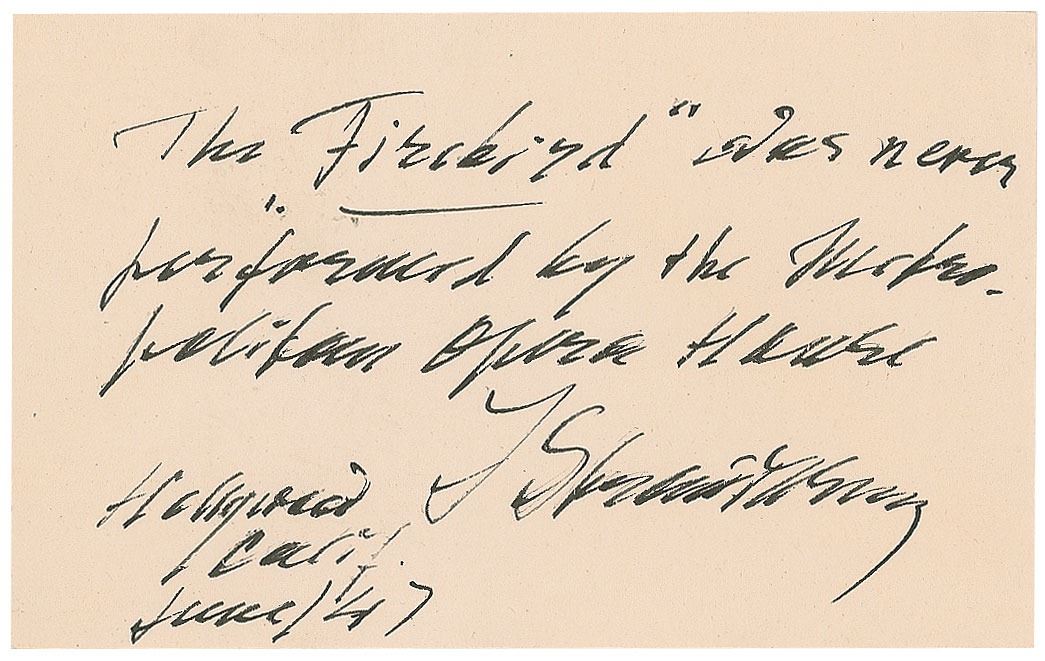 The "Firebird" was never
performed by the Metro-
politan Opera House
I Strawinsky
Hollywood
Calif.
June/47